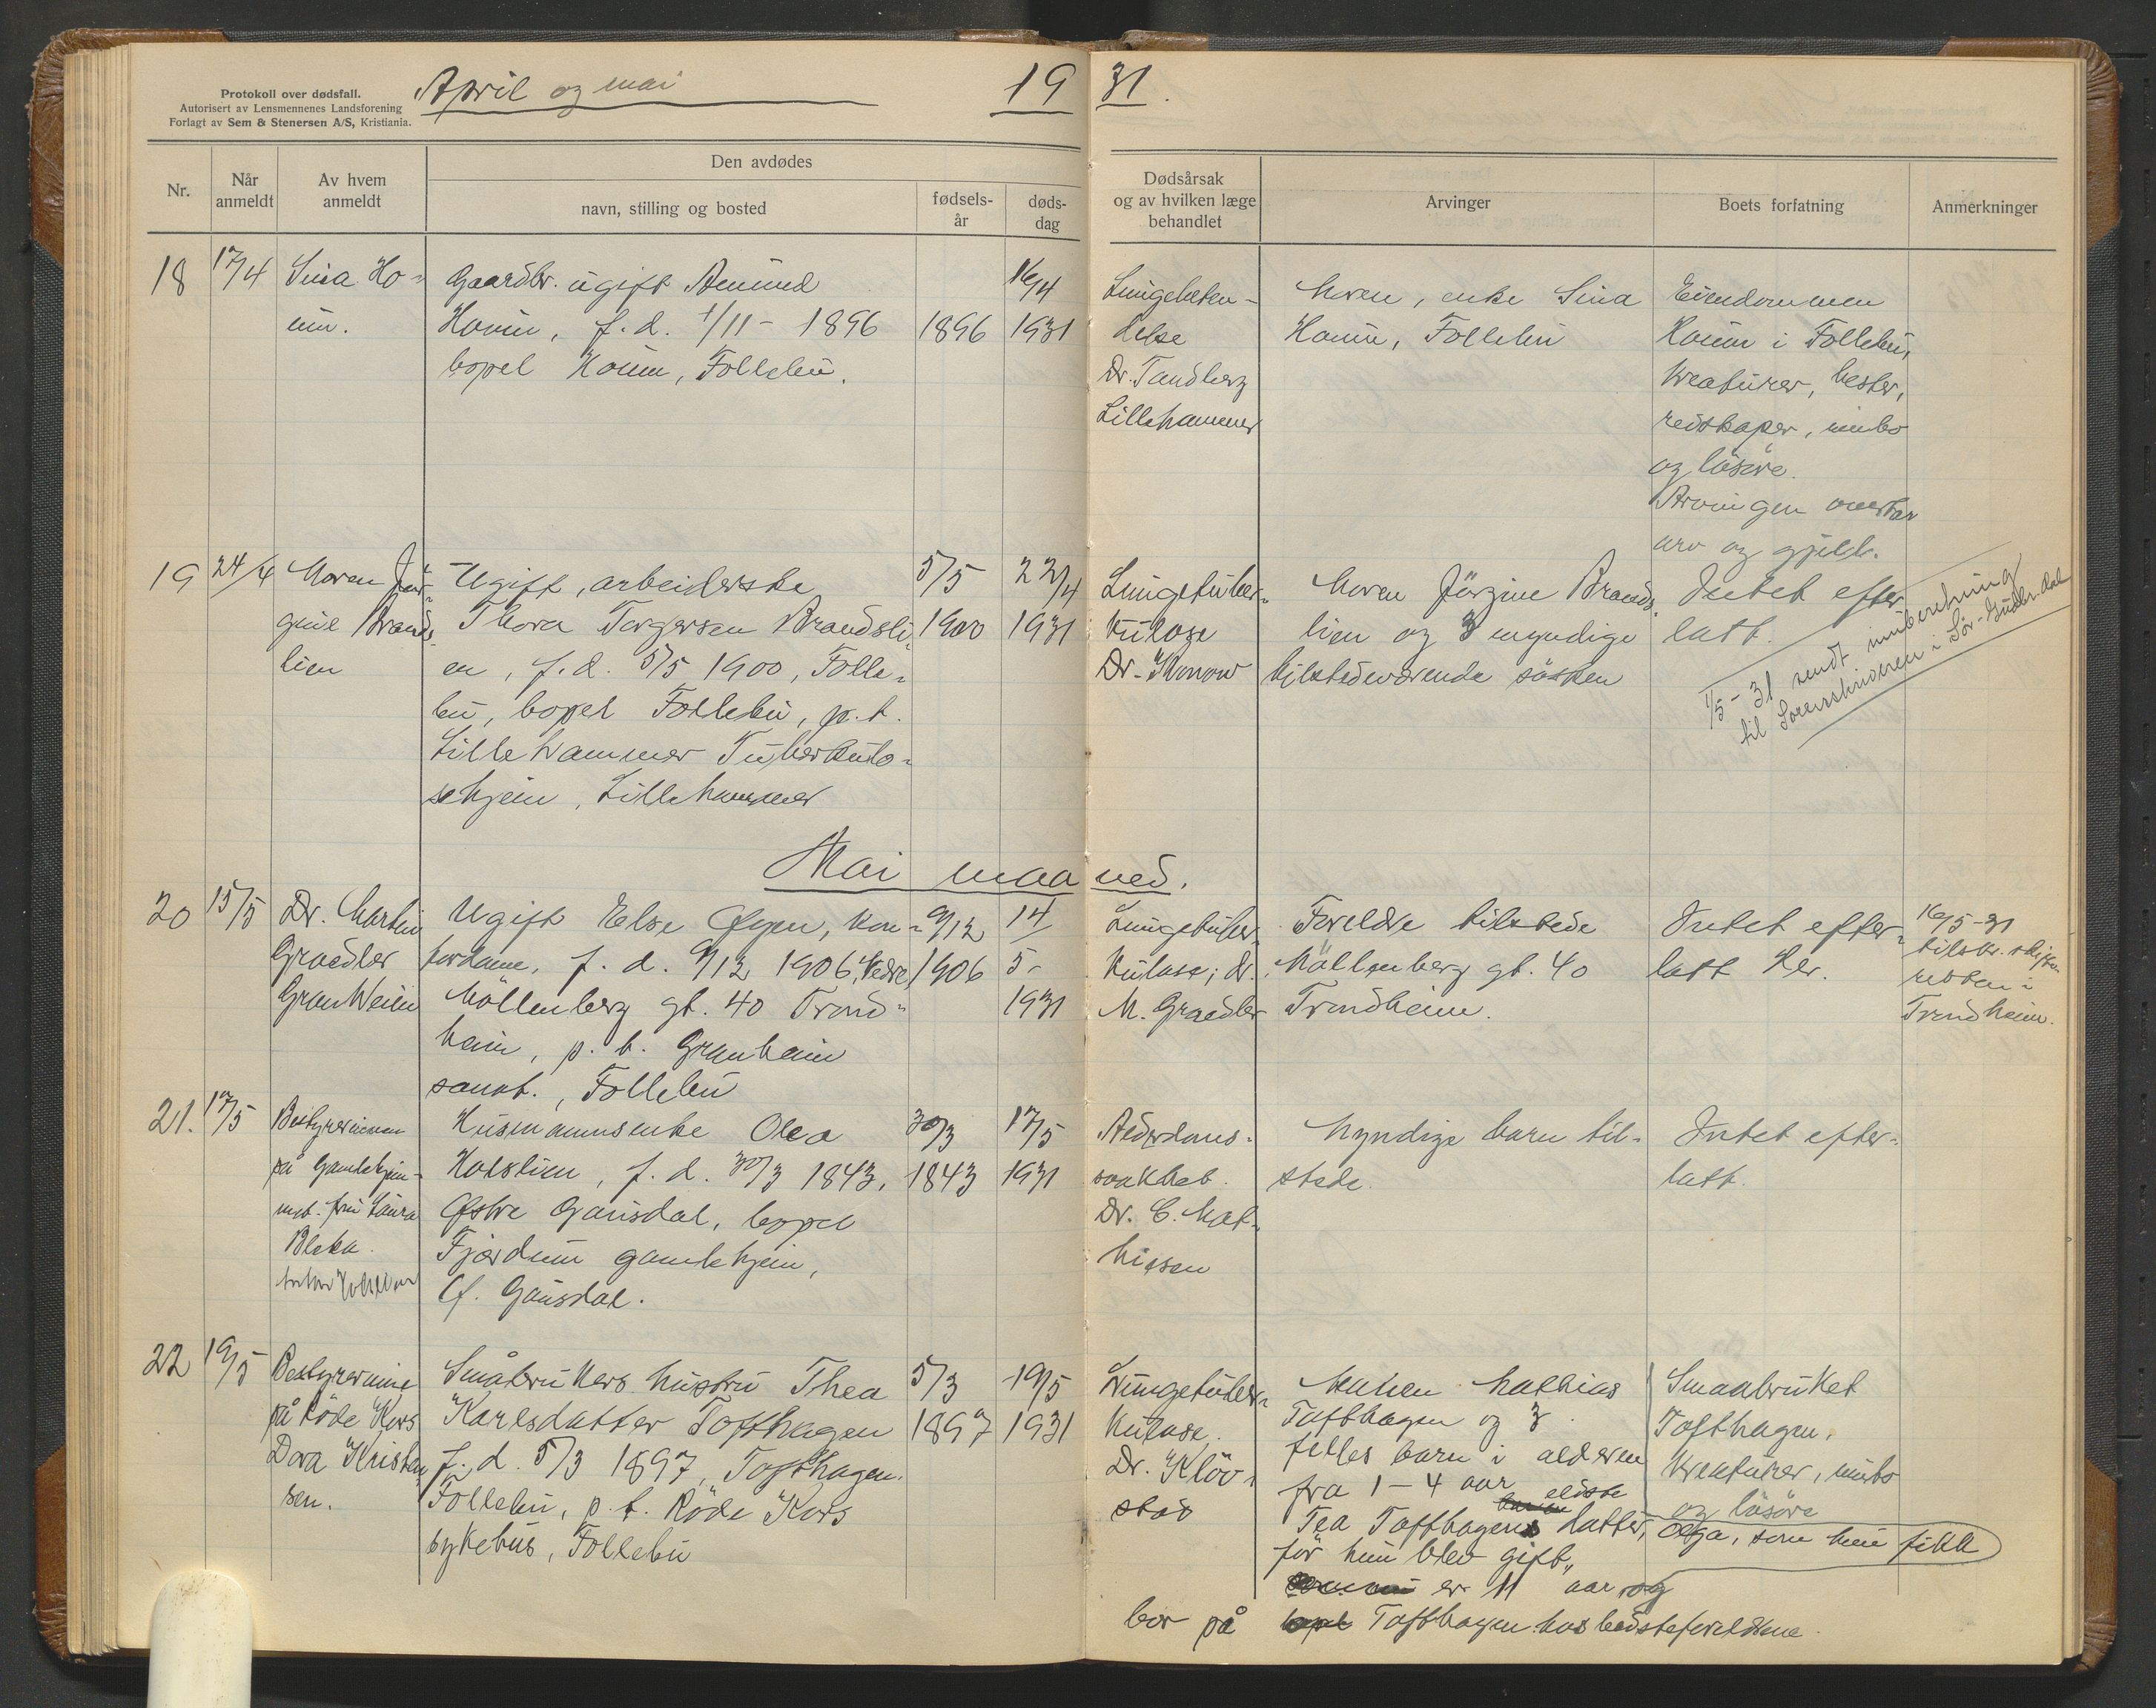 Protokoll over dødsfall.
Autorisert av Lensmennenes Landsforening
Forlagt av Sem & Stenersen A/S, Kristiania.
April og mai 19 31.
Nr.
Når anmeldt
Av hvem anmeldt
Den avdødes
navn, stilling og bosted
fødsels-
år
døds-
dag
Dødsårsak
og av hvilken læge
behandlet
Arvinger
Boets forfatning
Anmerkninger
18
17/4
Sina Ho-
vin.
Gaardbr. ugift Amund
Hovin, f.d. 1/11 - 1896
bopel Hovin, Follebu.
1896
16/4
1931
Lungebeten-
delse
Dr. Tandberg
Lillehammer
Moren, enke Sina
Hovin, Follebu
Eiendommen
Hovin i Follebu,
kreaturer, hester,
redskaper, innbo
og løsøre.
Arvingen overtar
arv og gjeld.
19
24/4
Moren Jør-
gine Brands-
lien
Ugift, arbeiderske
Thora Torgersen Brandsli-
en, f.d. 5/5 1900, Folle-
bu, bopel Follebu, p.t.
Lillehammer Tuberkulo-
sehjem, Lillehammer
5/5
1900
22/4
1931
Lungetuber-
kulose
Dr. Konow
Moren Jörgine Brands-
lien og 3 myndige
tilstedeværende søsken
Intet efter-
latt.
1/5-31 sendt innberetning
til Sorenskriveren i Sør-Gudbr.dal
Mai maaned.
20
15/5
Dr. Martin
Graedler
Granheim
Ugift Else Øyen, kon-
tordame, f.d. 9/12 1906, Nedre
Möllenberg gt. 40 Trond-
heim, p.t. Granheim
sanat., Follebu
9/12
1906
14/
5-
1931
Lungetuber-
kulose; dr.
M. Graedler
Foreldre tilstede
Möllenberg gt. 40
Trondheim.
Intet efter-
latt her.
16/5-31
tilskr. skifte-
retten i
Trondheim.
21.
17/5
Bestyrerinnen
på Gamlehjem-
met. fru Laura
Bleka
Husmannsenke Olea
Holslien, f.d. 30/3 1843,
Østre Gausdal, bopel
Fjerdum gamlehjem,
Ø. Gausdal.
30/3
1843
17/5
1931
Alderdoms-
svakhet.
Dr. C. Mat-
hisen
Myndige barn til-
stede.
Intet efter-
latt.
22
19/5
Bestyrerinne
på Røde Kors
Dora Kristen-
sen.
Småbrukers hustru Thea
Karlsdatter Tofthagen
f.d. 5/3 1897, Tofthagen.
Follebu, p.t. Röde Kors
sykehus, Follebu
5/3
1897
19/5
1931
Lungetuber-
kulose.
Dr. Kløv-
stad
Maken Mathias
Tofthagen og 3
felles barn i alderen
fra 1-4 aar
eldste
Tea Tofthagens datter, Olga, som hun fikk
för hun blev gift,
er 11 aar og
bor på Tofthagen hos bedsteforeldrene.
Smaabruket
Tofthagen,
kreaturer, innbo
og løsøre